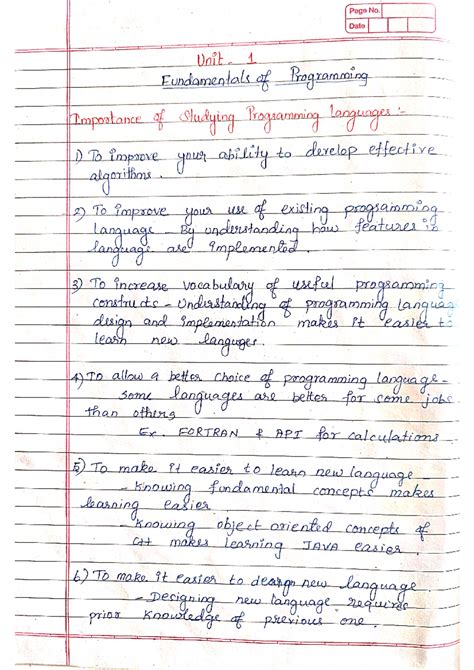 Page No.
Date
Unit - 1
Fundamentals of Programming
Importance of Studying Programming languages :-
1) To improve your ability to develop effective
algorithms.
2) To improve your use of existing programming
language - By understanding how features in
language are implemented.
3) To increase vocabulary of useful programming
constructs - Understanding of programming language
design and implementation makes it easier to
learn new languages.
4) To allow a better choice of programming language -
some languages are better for some jobs
than others
Ex. FORTRAN & API for calculations
5) To make it easier to learn new language
- Knowing fundamental concepts makes
learning easier
- Knowing object oriented concepts of
C++ makes learning JAVA easier.
6) To make it easier to design new language.
- Designing new language requires
prior knowledge of previous one.